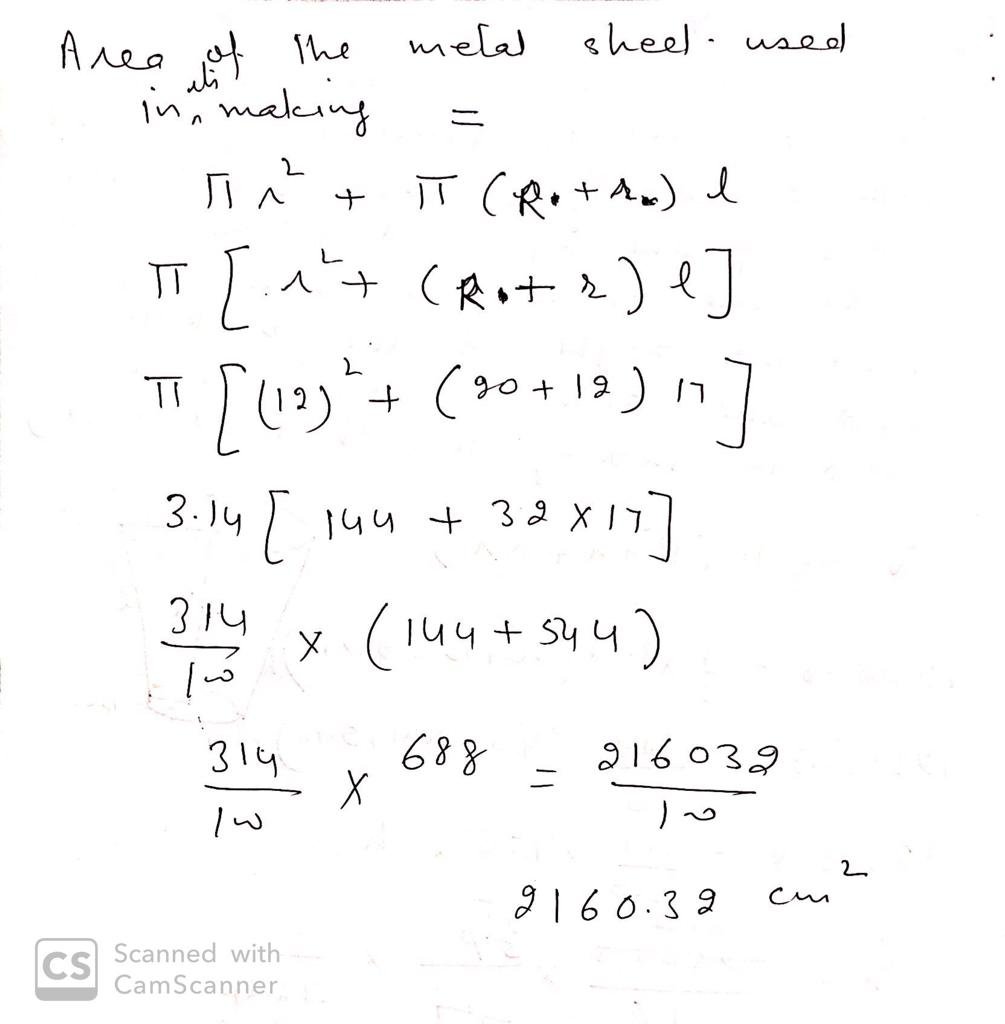 Area of the metal sheet used
in its making =
π r² + π (R + r) l
π [ r² + (R + r) l ]
π [ (12)² + (20 + 12) 17 ]
3.14 [ 144 + 32 × 17 ]
314/100 × (144 + 544)
314/100 × 688 = 216032/100
2160.32 cm²
CS Scanned with
CamScanner